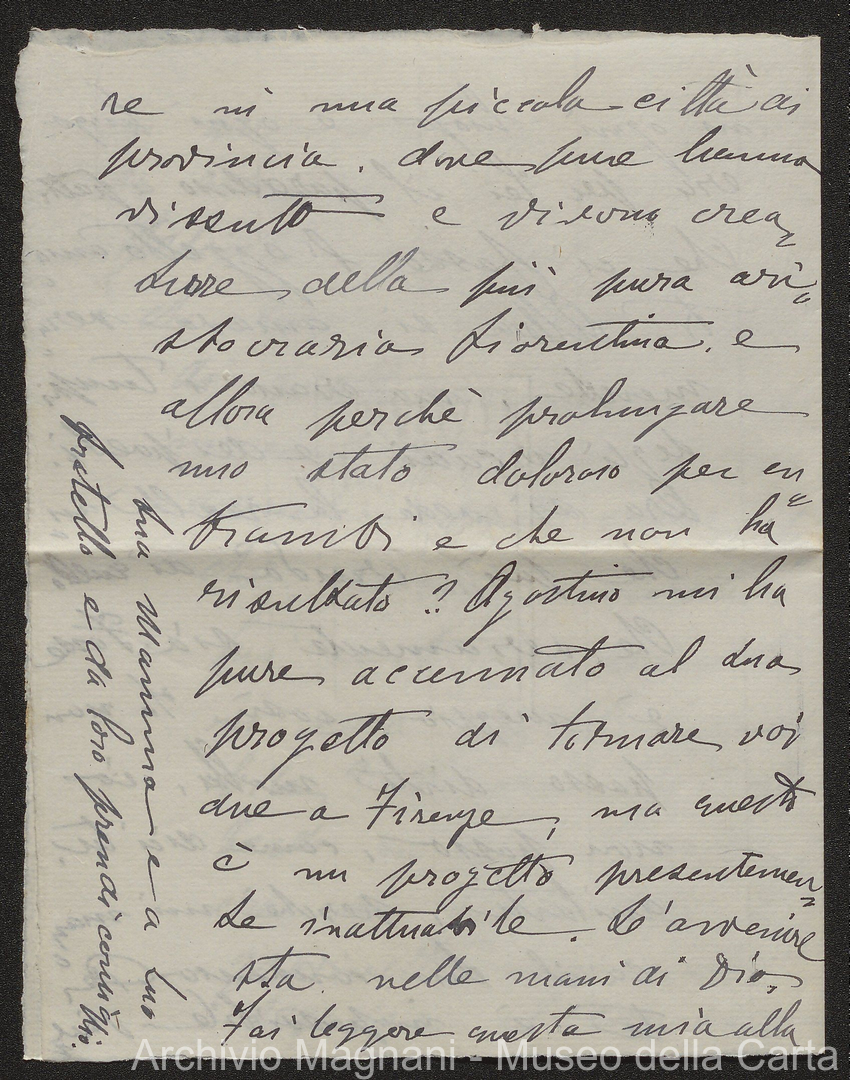 re in una piccola città di
provincia. dove pure hanno
vissuto e vivono crea=
ture della più pura ari=
stocrazia fiorentina. e
allora perchè prolungare
uno stato doloroso per en=
trambi e che non ha
risultato? Agostino mi ha
pure accennato al tuo
progetto di tornare voi
due a Firenze, ma questo
è un progetto presentemen=
te inattuabile. L'avvenire
sta nelle mani di Dio,
Fai leggere questa mia alla
tua Mamma e a tuo
fratello e da loro prendi consiglio.
Archivio Magnani - Museo della Carta